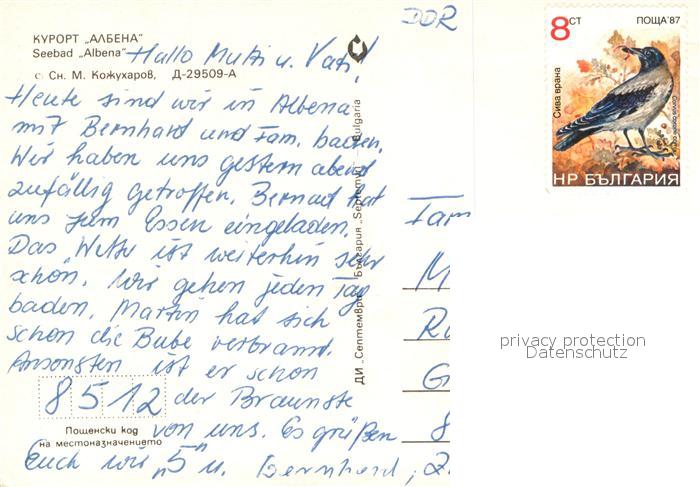 КУРОРТ „АЛБЕНА"
Seebad „Albena"
с Сн. М. Кожухаров, Д-29509-А
DDR
8 СТ
ПОЩА '87
Сива врана
НР БЪЛГАРИЯ
Hallo Mutti u. Vati,
Heute sind wir in Albena
mit Bernhard und Fam. baden.
Wir haben uns gestern abend
zufällig getroffen. Bernard hat
uns zum Essen eingeladen.
Das Wetter ist weiterhin sehr
schön. Wir gehen jeden Tag
baden. Martin hat sich
schon die verbrannt.
Ansonsten ist er schon
8512 der Braunste
von uns. Es grüßen
Euch wir „5" u. Bernhard,
Пощенски код
на местоназначението
ДИ „Септември" България „Septemvri" Bulgaria
Fam
M
R
G
8
privacy protection
Datenschutz